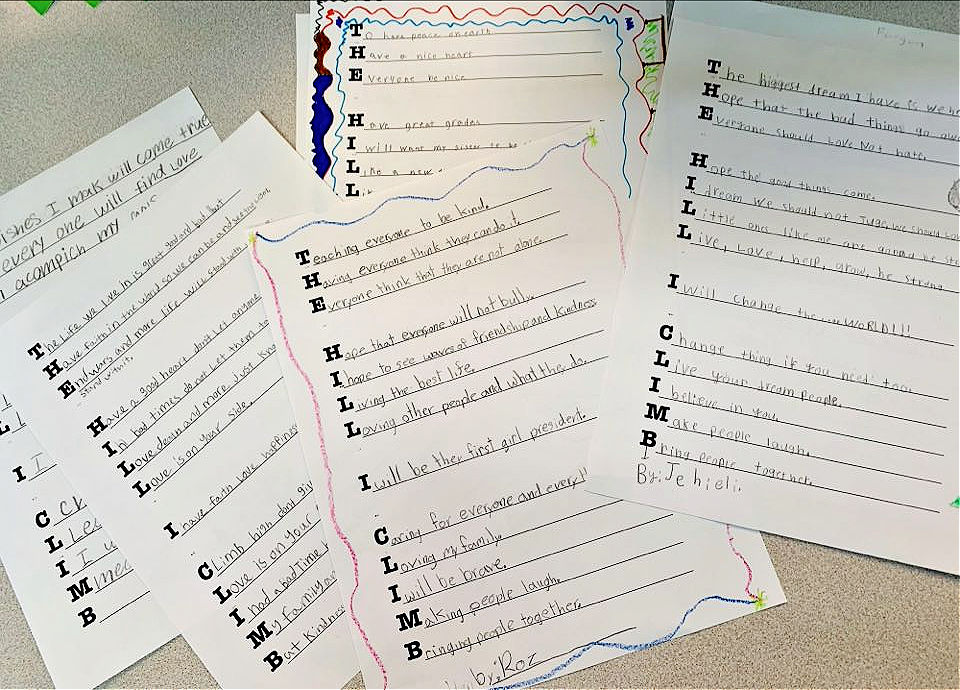 To have peace on earth
Have a nice heart
Everyone be nice
Have great grades
I will want my sister to be
Like a new
L
ishes I mak will come true
every one will find love
I acampich my
panic
L
I I
C
L Lea
I I w
M mec
B
The Life we live in is great god and bad but
Have faith in the world so we can be and see the world
End wars and more life will stood with
stind with it.
Have a good heart don't let anyone
In bad times do not let them to
Love down and more just kno
Love is on your side.
I have faith love happines
Climb high don't giv
Love is on your
I had a bad time
My family
But kindnes
Teaching everyone to be kind.
Having everyone think they can do it.
Everyone think that they are not alone.
Hope that everyone will not bully.
I hope to see waves of friendship and kindness
Living the best life.
Loving other people and what the do.
I will be the first girl president.
Caring for everyone and every
Loving my family.
I will be brave.
Making people laugh.
Bringing people together.
by: Roz
The biggest dream I have is we
Hope that the bad things go awa
Everyone should Love Not hate.
Hope the good things come.
I dream we should not Juge, we should
Little ones like me are gonna be
Live, Love, help, grow, he strong
I will change the WORLD!!!
Change thing if you need too
Live your dream people.
I believe in you
Make people laugh.
Bring people together.
By: Jehieli.